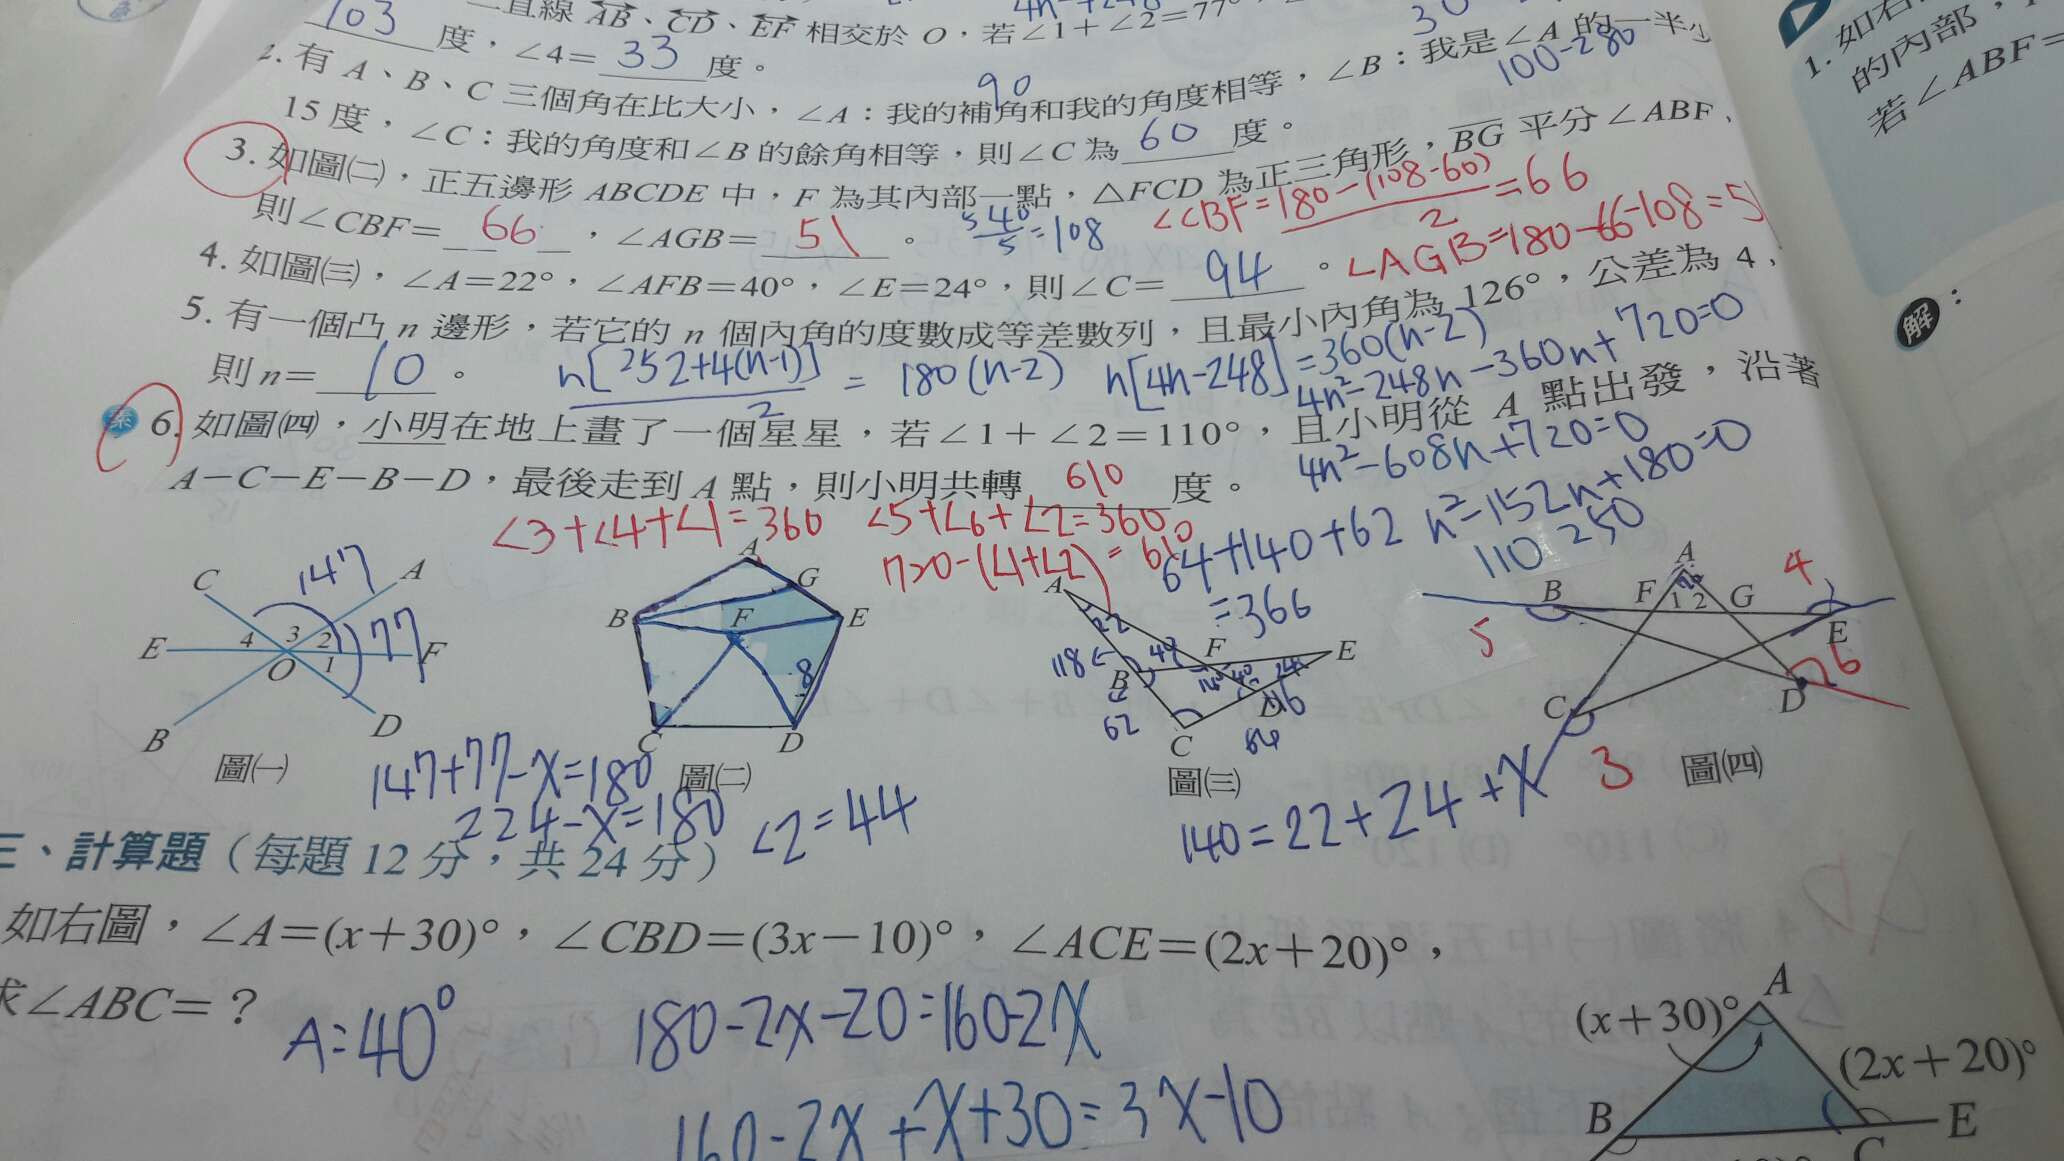 一直線 AB、CD、EF 相交於 O，若∠1＋∠2＝77°
103 度，∠4＝33 度。
2. 有 A、B、C 三個角在比大小，∠A：我的補角和我的角度相等，∠B：我是∠A 的一半少
90
30
100-280
15 度，∠C：我的角度和∠B 的餘角相等，則∠C 為 60 度。
3. 如圖㈡，正五邊形 ABCDE 中，F 為其內部一點，△FCD 為正三角形，BG 平分∠ABF，
則∠CBF＝66，∠AGB＝51。
540/5=108
∠CBF=180-(108-60)/2=66
∠AGB=180-66-108=51
4. 如圖㈢，∠A＝22°，∠AFB＝40°，∠E＝24°，則∠C＝94。
5. 有一個凸 n 邊形，若它的 n 個內角的度數成等差數列，且最小內角為 126°，公差為 4，
則 n＝10。
n[252+4(n-1)]/2 = 180(n-2)
n[4n-248]=360(n-2)
4n²-248n-360n+720=0
4n²-608n+720=0
n²-152n+180=0
6. 如圖㈣，小明在地上畫了一個星星，若∠1＋∠2＝110°，且小明從 A 點出發，沿著
A－C－E－B－D，最後走到 A 點，則小明共轉 610 度。
∠3+∠4+∠1=360 ∠5+∠6+∠2=360
720-(∠1+∠2)=610
64+140+62
=366
110 250
C 147 A
E 4 3 2 77 F
O 1
B D
圖㈠
A
G
B F E
8
C D
圖㈡
A
22
118 40 F E
B 140 40 24
62 D 116
C 64
圖㈢
A
B F 1 2 G 4
5 E
6
C D
3
圖㈣
147+77-x=180
224-x=180
∠2=44
140=22+24+x
三、計算題（每題 12 分，共 24 分）
如右圖，∠A＝(x＋30)°，∠CBD＝(3x－10)°，∠ACE＝(2x＋20)°，
求∠ABC＝？
A=40°
180-2x-20=160-2x
160-2x+x+30=3x-10
A
(x＋30)°
(2x＋20)°
B C E
1. 如右
的內部，
若∠ABF＝
解：